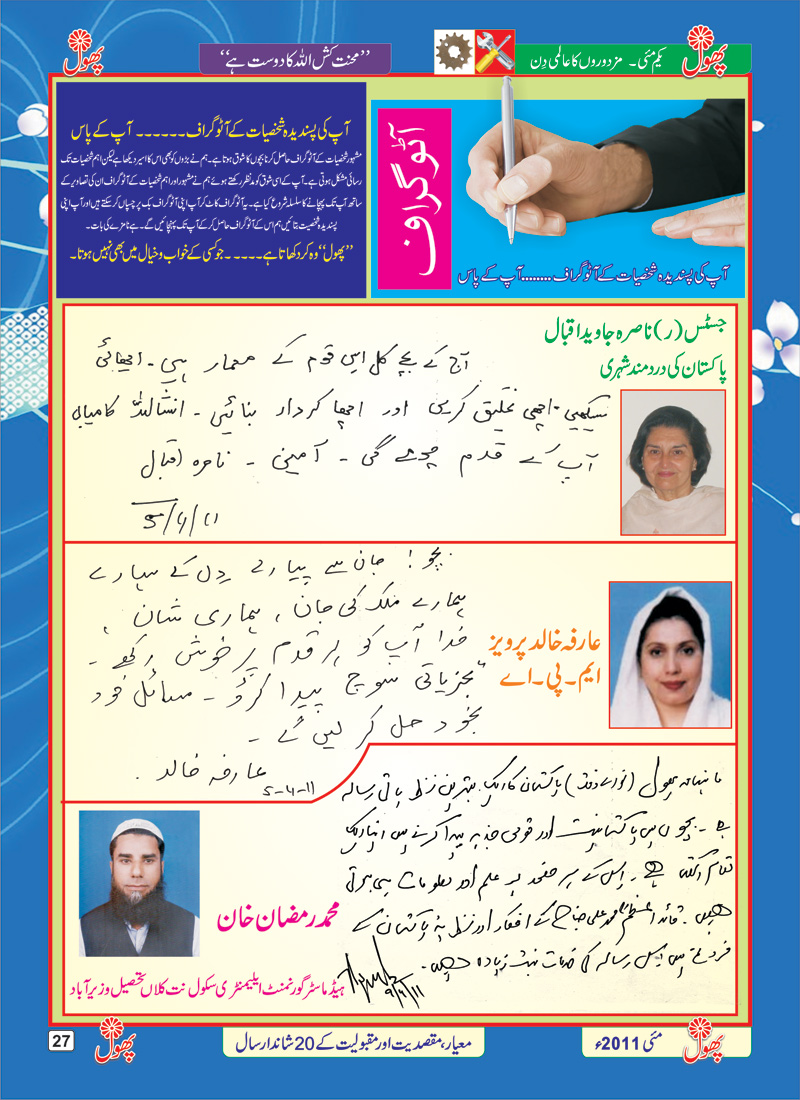 پھول
یکم مئی ۔ مزدوروں کا عالمی دِن
’’محنت کش اللہ کا دوست ہے‘‘
پھول
آٹوگراف
آپ کی پسندیدہ شخصیات کے آٹوگراف........آپ کے پاس
آپ کی پسندیدہ شخصیات کے آٹوگراف۔۔۔۔۔۔ آپ کے پاس
مشہور شخصیات کے آٹوگراف حاصل کرنا بچوں کا شوق ہوتا ہے۔ ہم نے بڑوں کو بھی اس کا اسیر دیکھا ہے لیکن اہم شخصیات تک
رسائی مشکل ہوتی ہے۔ آپ کے اسی شوق کو مدنظر رکھتے ہوئے ہم نے مشہور اور اہم شخصیات کے آٹوگراف ان کی تصاویر کے
ساتھ آپ تک پہچانے کا سلسلہ شروع کیا ہے۔ یہ آٹوگراف کاٹ کر آپ اپنی آٹوگراف بک پر چسپاں کر سکتے ہیں اور آپ اپنی
پسندیدہ شخصیت بتائیں ہم اس کے آٹوگراف حاصل کر کے آپ تک پہنچائیں گے۔ ہے نا مزے کی بات۔
’’پھول‘‘ وہ کر دکھاتا ہے۔۔۔۔۔ جو کسی کے خواب و خیال میں بھی نہیں ہوتا۔
جسٹس (ر) ناصرہ جاوید اقبال
پاکستان کی درد مند شہری
آج کے بچے کل اس قوم کے معمار ہیں۔ اچھائی
سیکھیں اچھی تخلیق کریں اور اچھا کردار بنائیں۔ انشاللہ کامیابی
آپ کے قدم چومے گی۔ آمین۔ ناصرہ اقبال
5/4/11
بچو! جان سے پیارے دِل کے سہارے
ہمارے ملک کی جان، ہماری شان،
خدا آپ کو ہر قدم پر خوش رکھے۔
تجزیاتی سوچ پیدا کرو۔ مسائل خود
بخود حل کر لیں گے۔
عارفہ خالد۔
5-4-11
عارفہ خالد پرویز
ایم۔پی۔اے
ماہنامہ پھول (نوائے وقت) پاکستان کا ایک بہترین نظریاتی رسالہ
ہے۔ بچوں میں پاکستانیت اور قومی جذبہ پیدا کرنے میں اپنا ایک
مقام رکھتا ہے۔ اس کے ہر صفحہ پر علم اور معلومات ہی ہوتی
ہیں۔ قائد اعظم محمد علی جناح کے افکار اور نظریۂ پاکستان کے
فروغ میں اس رسالہ کی خدمات بہت زیادہ ہیں۔
9/4/11
محمد رمضان خان
ہیڈ ماسٹر گورنمنٹ ایلیمنٹری سکول نت کلاں تحصیل وزیر آباد
پھول
مئی 2011ء
معیار، مقصدیت اور مقبولیت کے 20 شاندار سال
پھول
27